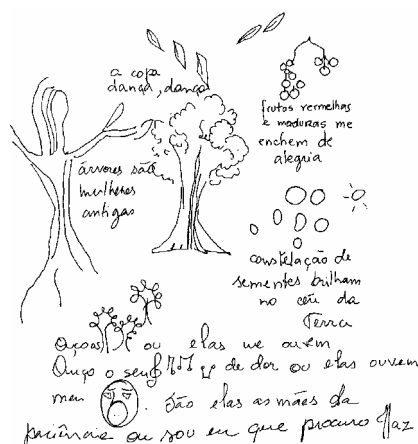 a copa
dança, dança
frutos vermelhas
e maduras me
enchem de
alegria
árvores são
mulheres
antigas
constelação de
sementes brilham
no céu da
Terra
ou elas me ouvem
Ouço o seu de dor ou elas ouvem
meu . São elas as mães da
paciência ou sou eu que procuro Paz